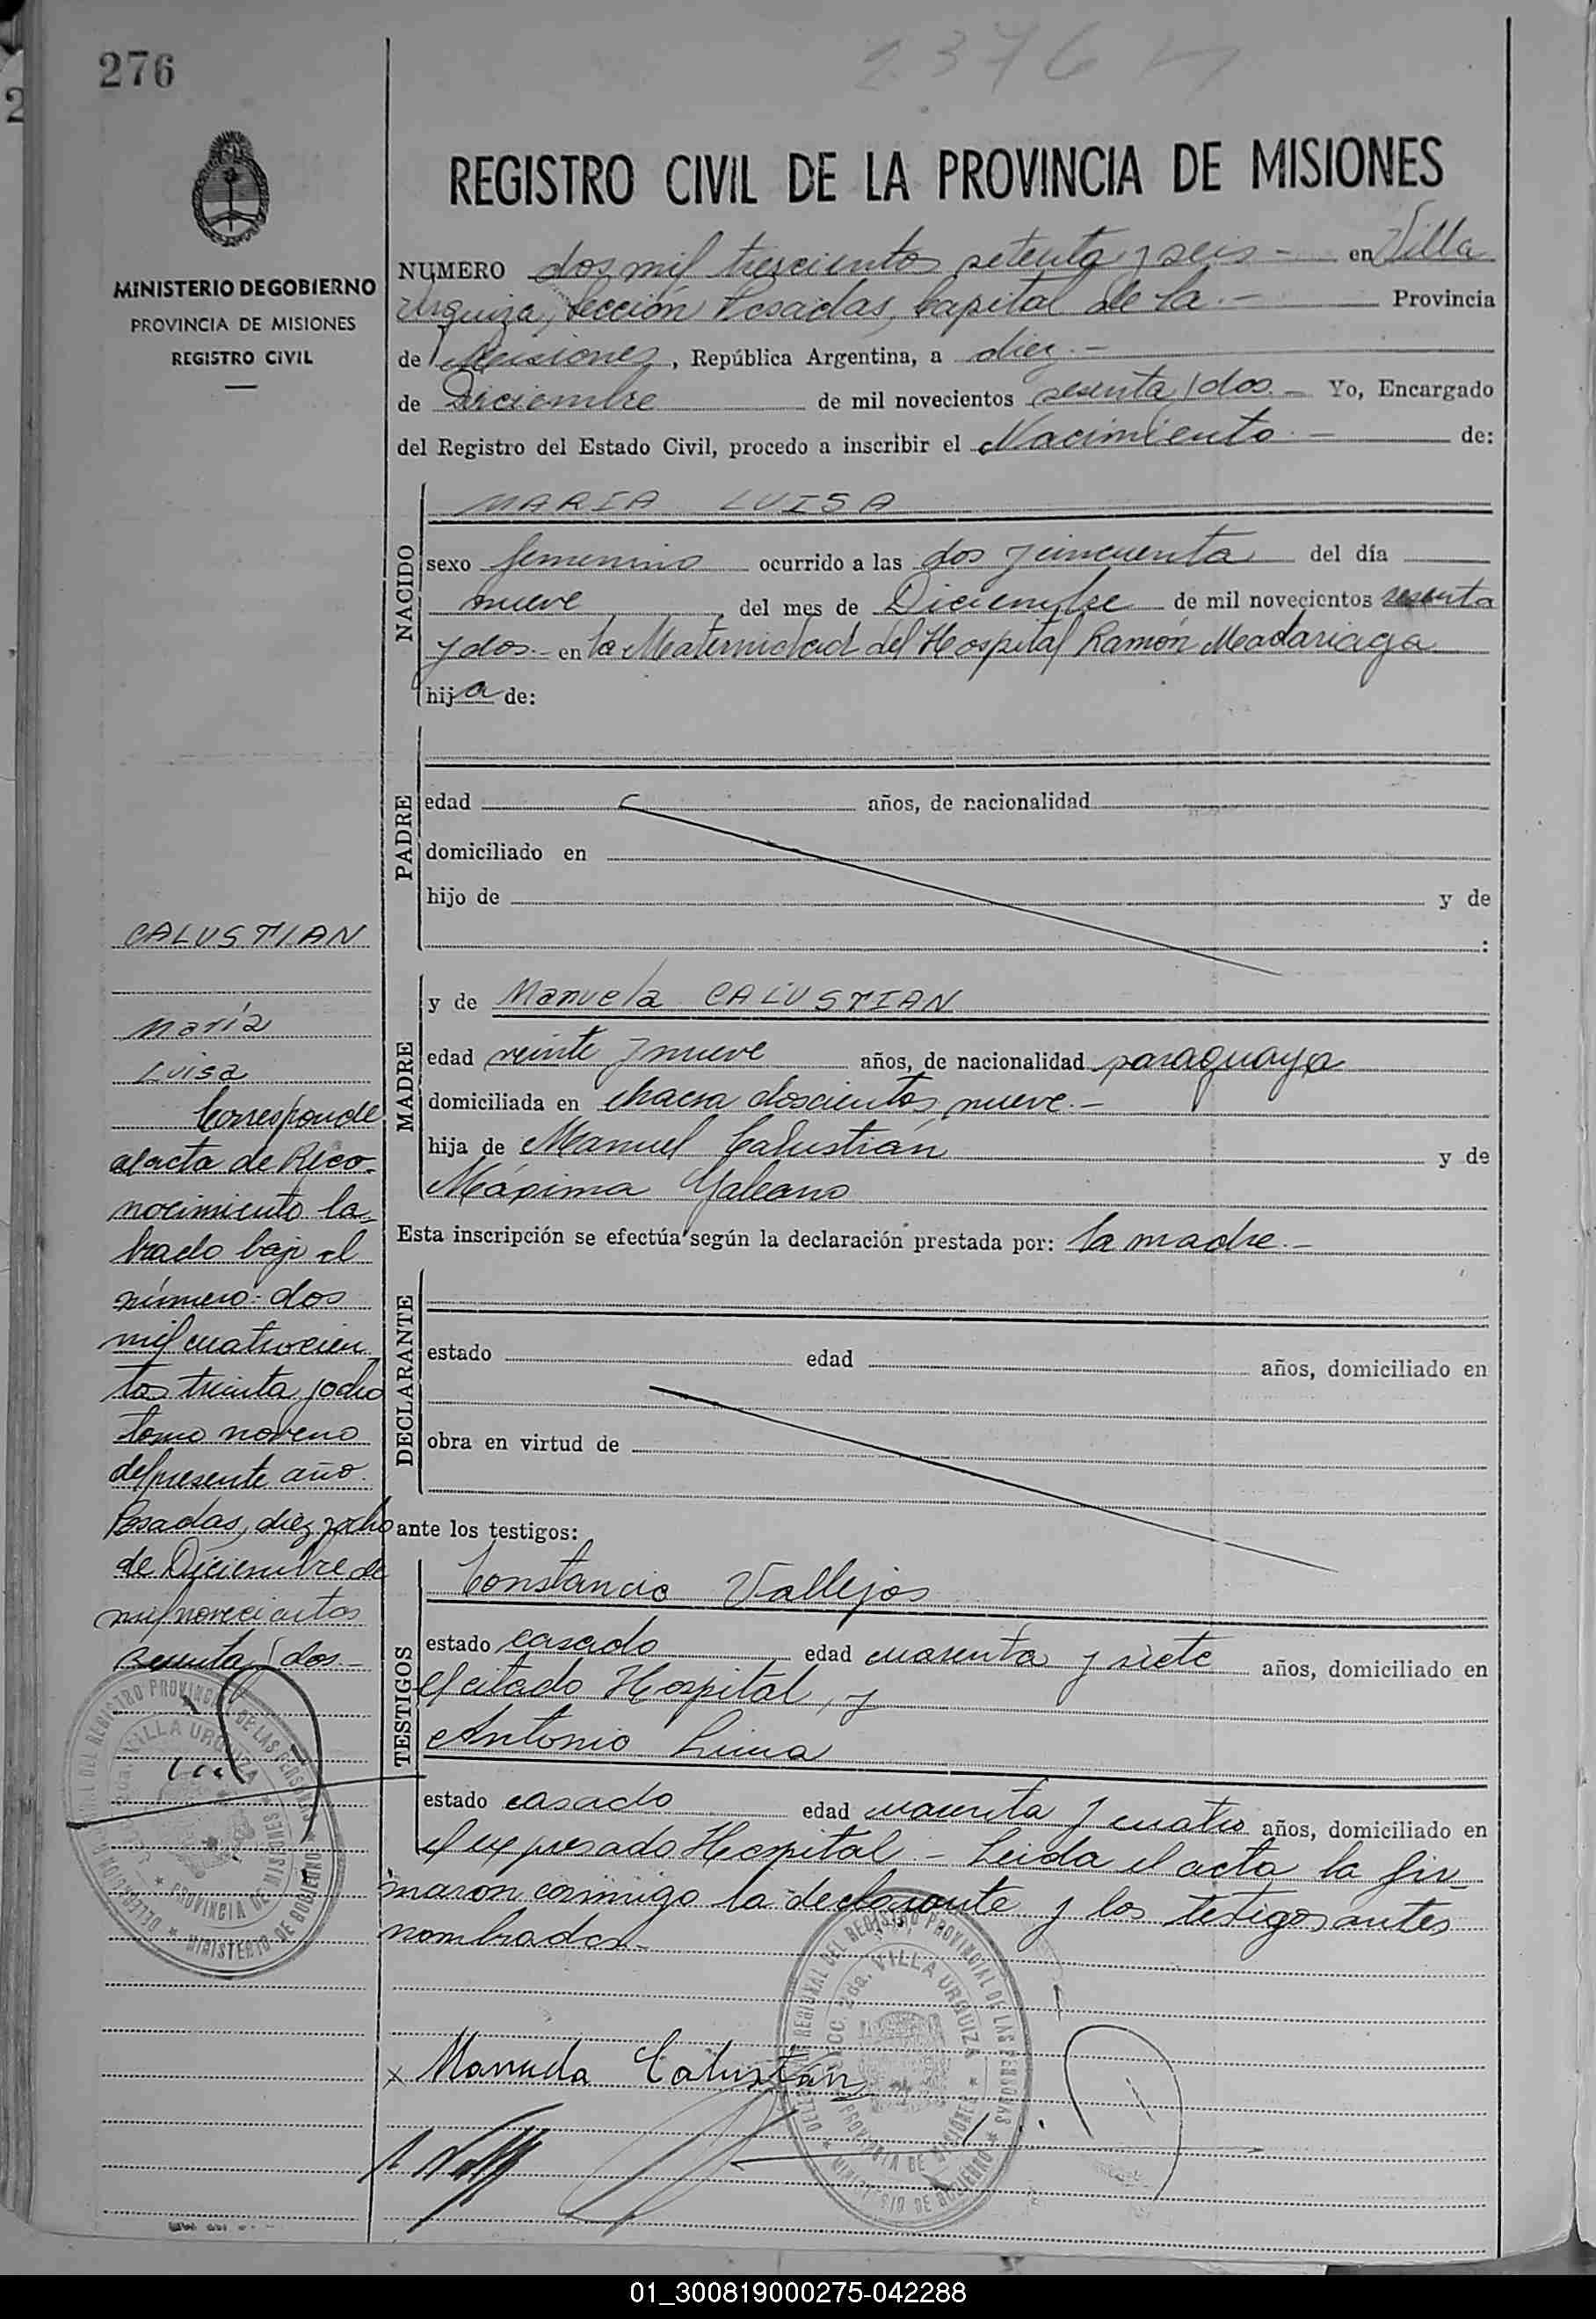 276
2376
REGISTRO CIVIL DE LA PROVINCIA DE MISIONES
MINISTERIO DE GOBIERNO
PROVINCIA DE MISIONES
REGISTRO CIVIL
NUMERO dos mil trescientos setenta y seis - en Villa
Urquiza, Sección Posadas, Capital de la - Provincia
de Misiones, República Argentina, a diez -
de Diciembre de mil novecientos sesenta y dos - Yo, Encargado
del Registro del Estado Civil, procedo a inscribir el Nacimiento - de:
NACIDO
MARIA LUISA
sexo femenino ocurrido a las dos y cincuenta del día
nueve del mes de Diciembre de mil novecientos sesenta
y dos - en la Maternidad del Hospital Ramón Madariaga
hija de:
PADRE
edad años, de nacionalidad
domiciliado en
hijo de y de
:
MADRE
y de Manuela CALUSTIAN
edad veinte y nueve años, de nacionalidad paraguaya
domiciliada en chacra doscientos nueve. -
hija de Manuel Calustián y de
Máxima Galeano
Esta inscripción se efectúa según la declaración prestada por: la madre. -
DECLARANTE
estado edad años, domiciliado en
obra en virtud de
ante los testigos:
TESTIGOS
Constancio Vallejos
estado casado edad cuarenta y siete años, domiciliado en
el citado Hospital, y
Antonio Lima
estado casado edad cuarenta y cuatro años, domiciliado en
el expresado Hospital - Leida el acta la fir-
maron conmigo la declarante y los testigos antes
nombrados -
x Manuela Calustian
CALUSTIAN
María
Luisa
Corresponde
al acta de Reco-
nocimiento la-
brado bajo el
número: dos
mil cuatrocien
tos treinta y ocho
tomo noveno
del presente año.
Posadas, diez y ocho
de Diciembre de
mil novecientos
sesenta y dos -
DELEGACION REGIONAL DEL REGISTRO PROVINCIAL DE LAS PERSONAS
VILLA URQUIZA
PROVINCIA DE MISIONES
MINISTERIO DE GOBIERNO
DELEGACION REGIONAL DEL REGISTRO PROVINCIAL DE LAS PERSONAS
SECC. 2da. VILLA URQUIZA
PROVINCIA DE MISIONES
MINISTERIO DE GOBIERNO
01_300819000275-042288